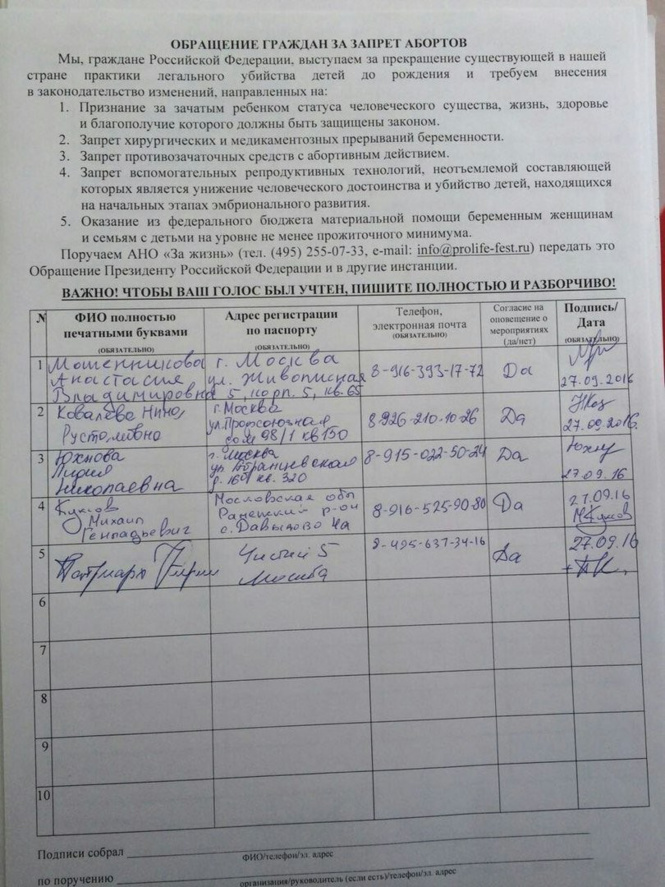 ОБРАЩЕНИЕ ГРАЖДАН ЗА ЗАПРЕТ АБОРТОВ
Мы, граждане Российской Федерации, выступаем за прекращение существующей в нашей
стране практики легального убийства детей до рождения и требуем внесения
в законодательство изменений, направленных на:
1. Признание за зачатым ребенком статуса человеческого существа, жизнь, здоровье
и благополучие которого должны быть защищены законом.
2. Запрет хирургических и медикаментозных прерываний беременности.
3. Запрет противозачаточных средств с абортивным действием.
4. Запрет вспомогательных репродуктивных технологий, неотъемлемой составляющей
которых является унижение человеческого достоинства и убийство детей, находящихся
на начальных этапах эмбрионального развития.
5. Оказание из федерального бюджета материальной помощи беременным женщинам
и семьям с детьми на уровне не менее прожиточного минимума.
Поручаем АНО «За жизнь» (тел. (495) 255-07-33, e-mail: info@prolife-fest.ru) передать это
Обращение Президенту Российской Федерации и в другие инстанции.
ВАЖНО! ЧТОБЫ ВАШ ГОЛОС БЫЛ УЧТЕН, ПИШИТЕ ПОЛНОСТЬЮ И РАЗБОРЧИВО!
N ФИО полностью печатными буквами (ОБЯЗАТЕЛЬНО) Адрес регистрации по паспорту (ОБЯЗАТЕЛЬНО) Телефон, электронная почта (ОБЯЗАТЕЛЬНО) Согласие на оповещение о мероприятиях (да/нет) Подпись/ Дата (ОБЯЗАТЕЛЬНО)
1 Мошенникова г. Москва
Анастасия ул. Живописная 8-916-393-17-72 Да
Владимировна 5, корп. 5, кв. 65 27.09.2016
2 Ковалева Нино, г. Москва
ул. Профсоюзная 8-926-210-10-26 Да
Рустамовна дом 98/1 кв 150 27.09.2016.
3 Юхнова г. Москва
Лидия 8-915-022-50-24 Да
Николаевна кв. 320 27.09.16
4 Московская обл 27.09.16
Михаил р-он 8-916-525-90-80 Да
Геннадьевич с. Давыдово 4а
5 Патриарх Кирилл Чистый 5 8-495-637-34-16 27.09.16
Москва Да
6
7
8
9
10
Подписи собрал
ФИО/телефон/эл. адрес
по поручению
организация/руководитель (если есть)/телефон/эл. адрес